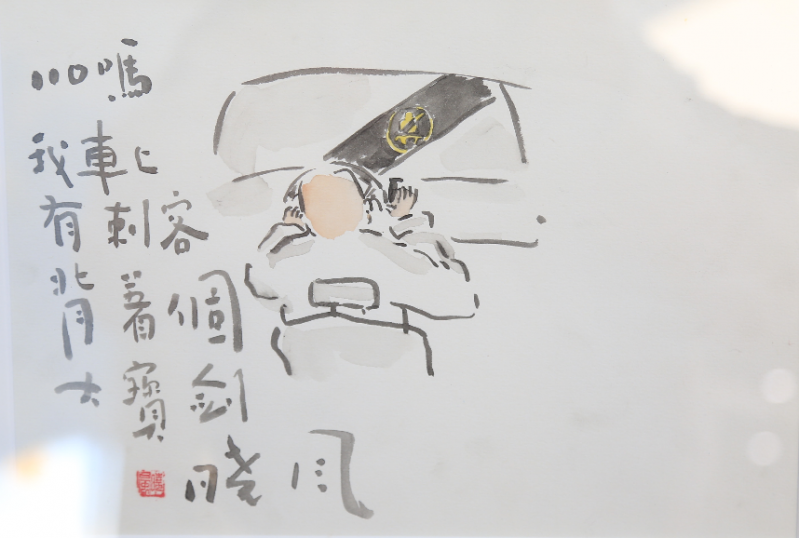 110嗎
我車上
有刺客
背著個
大寶劍
月晓风